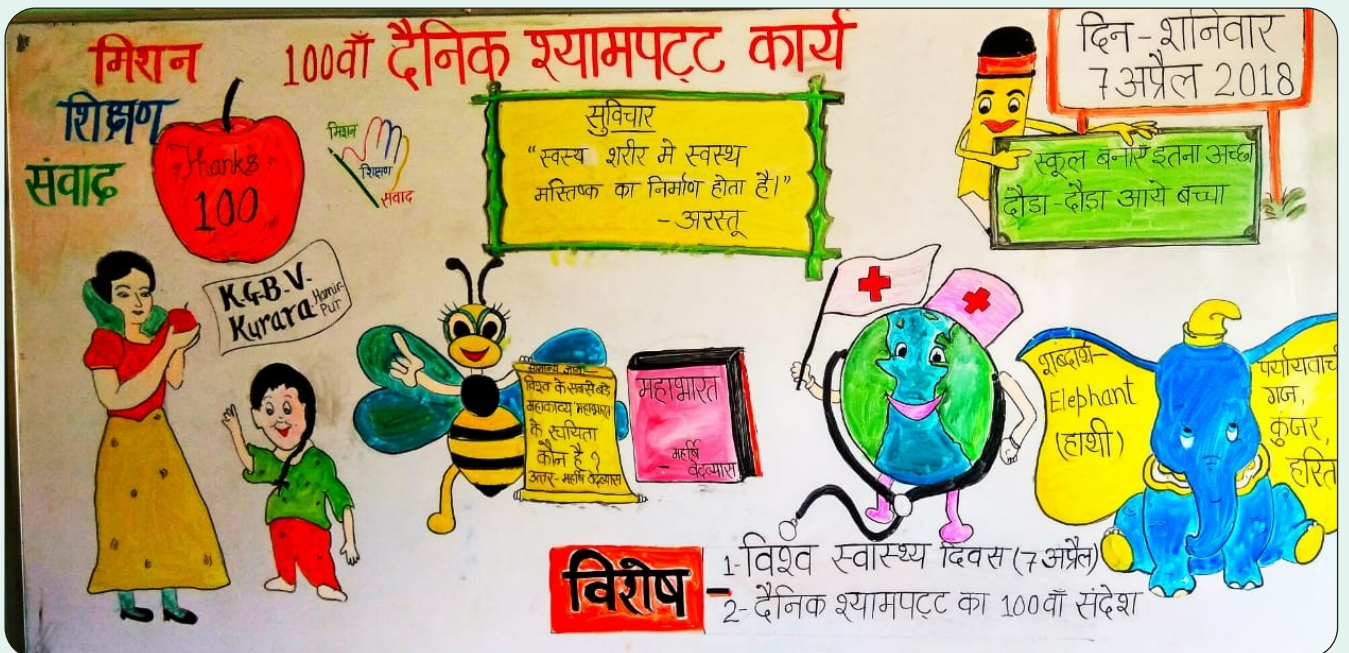 मिशन
शिक्षण
संवाद
100वाँ दैनिक श्यामपट्ट कार्य
दिन - शनिवार
7 अप्रैल 2018
Thanks
100
मिशन
शिक्षण
संवाद
सुविचार
"स्वस्थ शरीर मे स्वस्थ
मस्तिष्क का निर्माण होता है।"
- अरस्तू
स्कूल बनाएँ इतना अच्छा
दौडा-दौडा आये बच्चा
K.G.B.V.
Kurara Hamir-
Pur
सामान्य ज्ञान-
विश्व के सबसे बडे
महाकाव्य 'महाभारत'
के रचयिता
कौन है ?
उत्तर- महर्षि वेदव्यास
महाभारत
- महर्षि
वेदव्यास
शब्दार्थ-
Elephant
(हाथी)
पर्यायवाच
गज,
कुंजर,
हस्ति
विशेष -
1- विश्व स्वास्थ्य दिवस (7 अप्रैल)
2- दैनिक श्यामपट्ट का 100वाँ संदेश